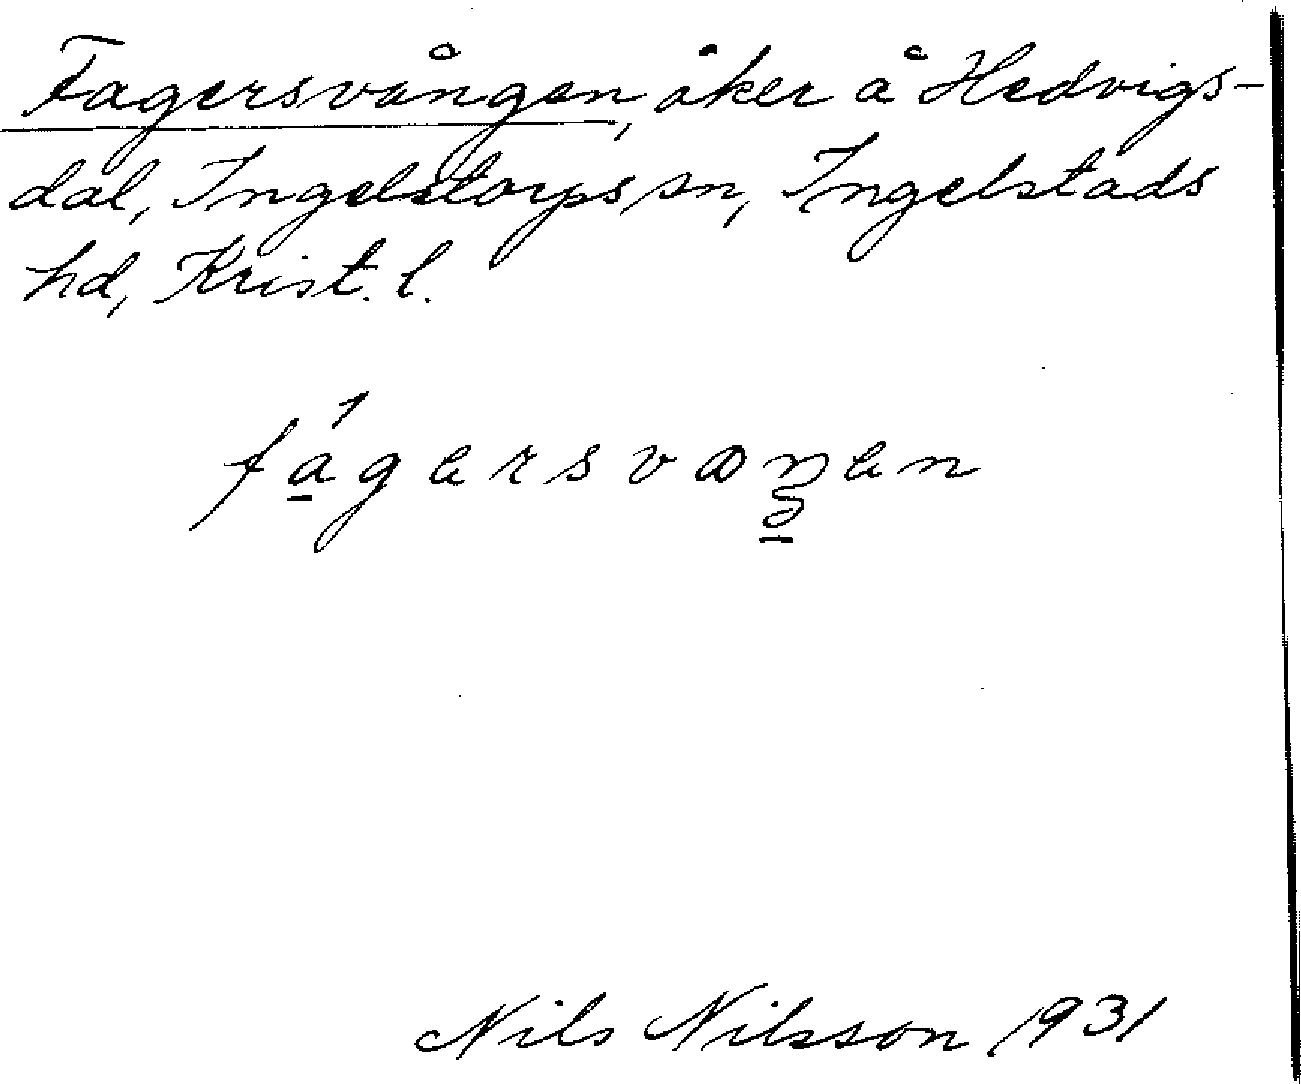 Fagersvången, åker å Hedvigs-
dal, Ingelstorps sn, Ingelstads
hd, Krist. l.
fágersvaŋen
Nils Nilsson 1931